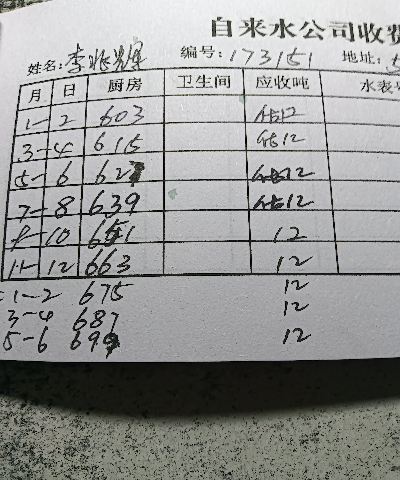 自来水公司收费
姓名:李兆辉 编号:173151 地址:
月 日 厨房 卫生间 应收吨 水表
1-2 603 估12
3-4 615 估12
5-6 627 估12
7-8 639 估12
9-10 651 12
11-12 663 12
1-2 675 12
3-4 687 12
5-6 699 12